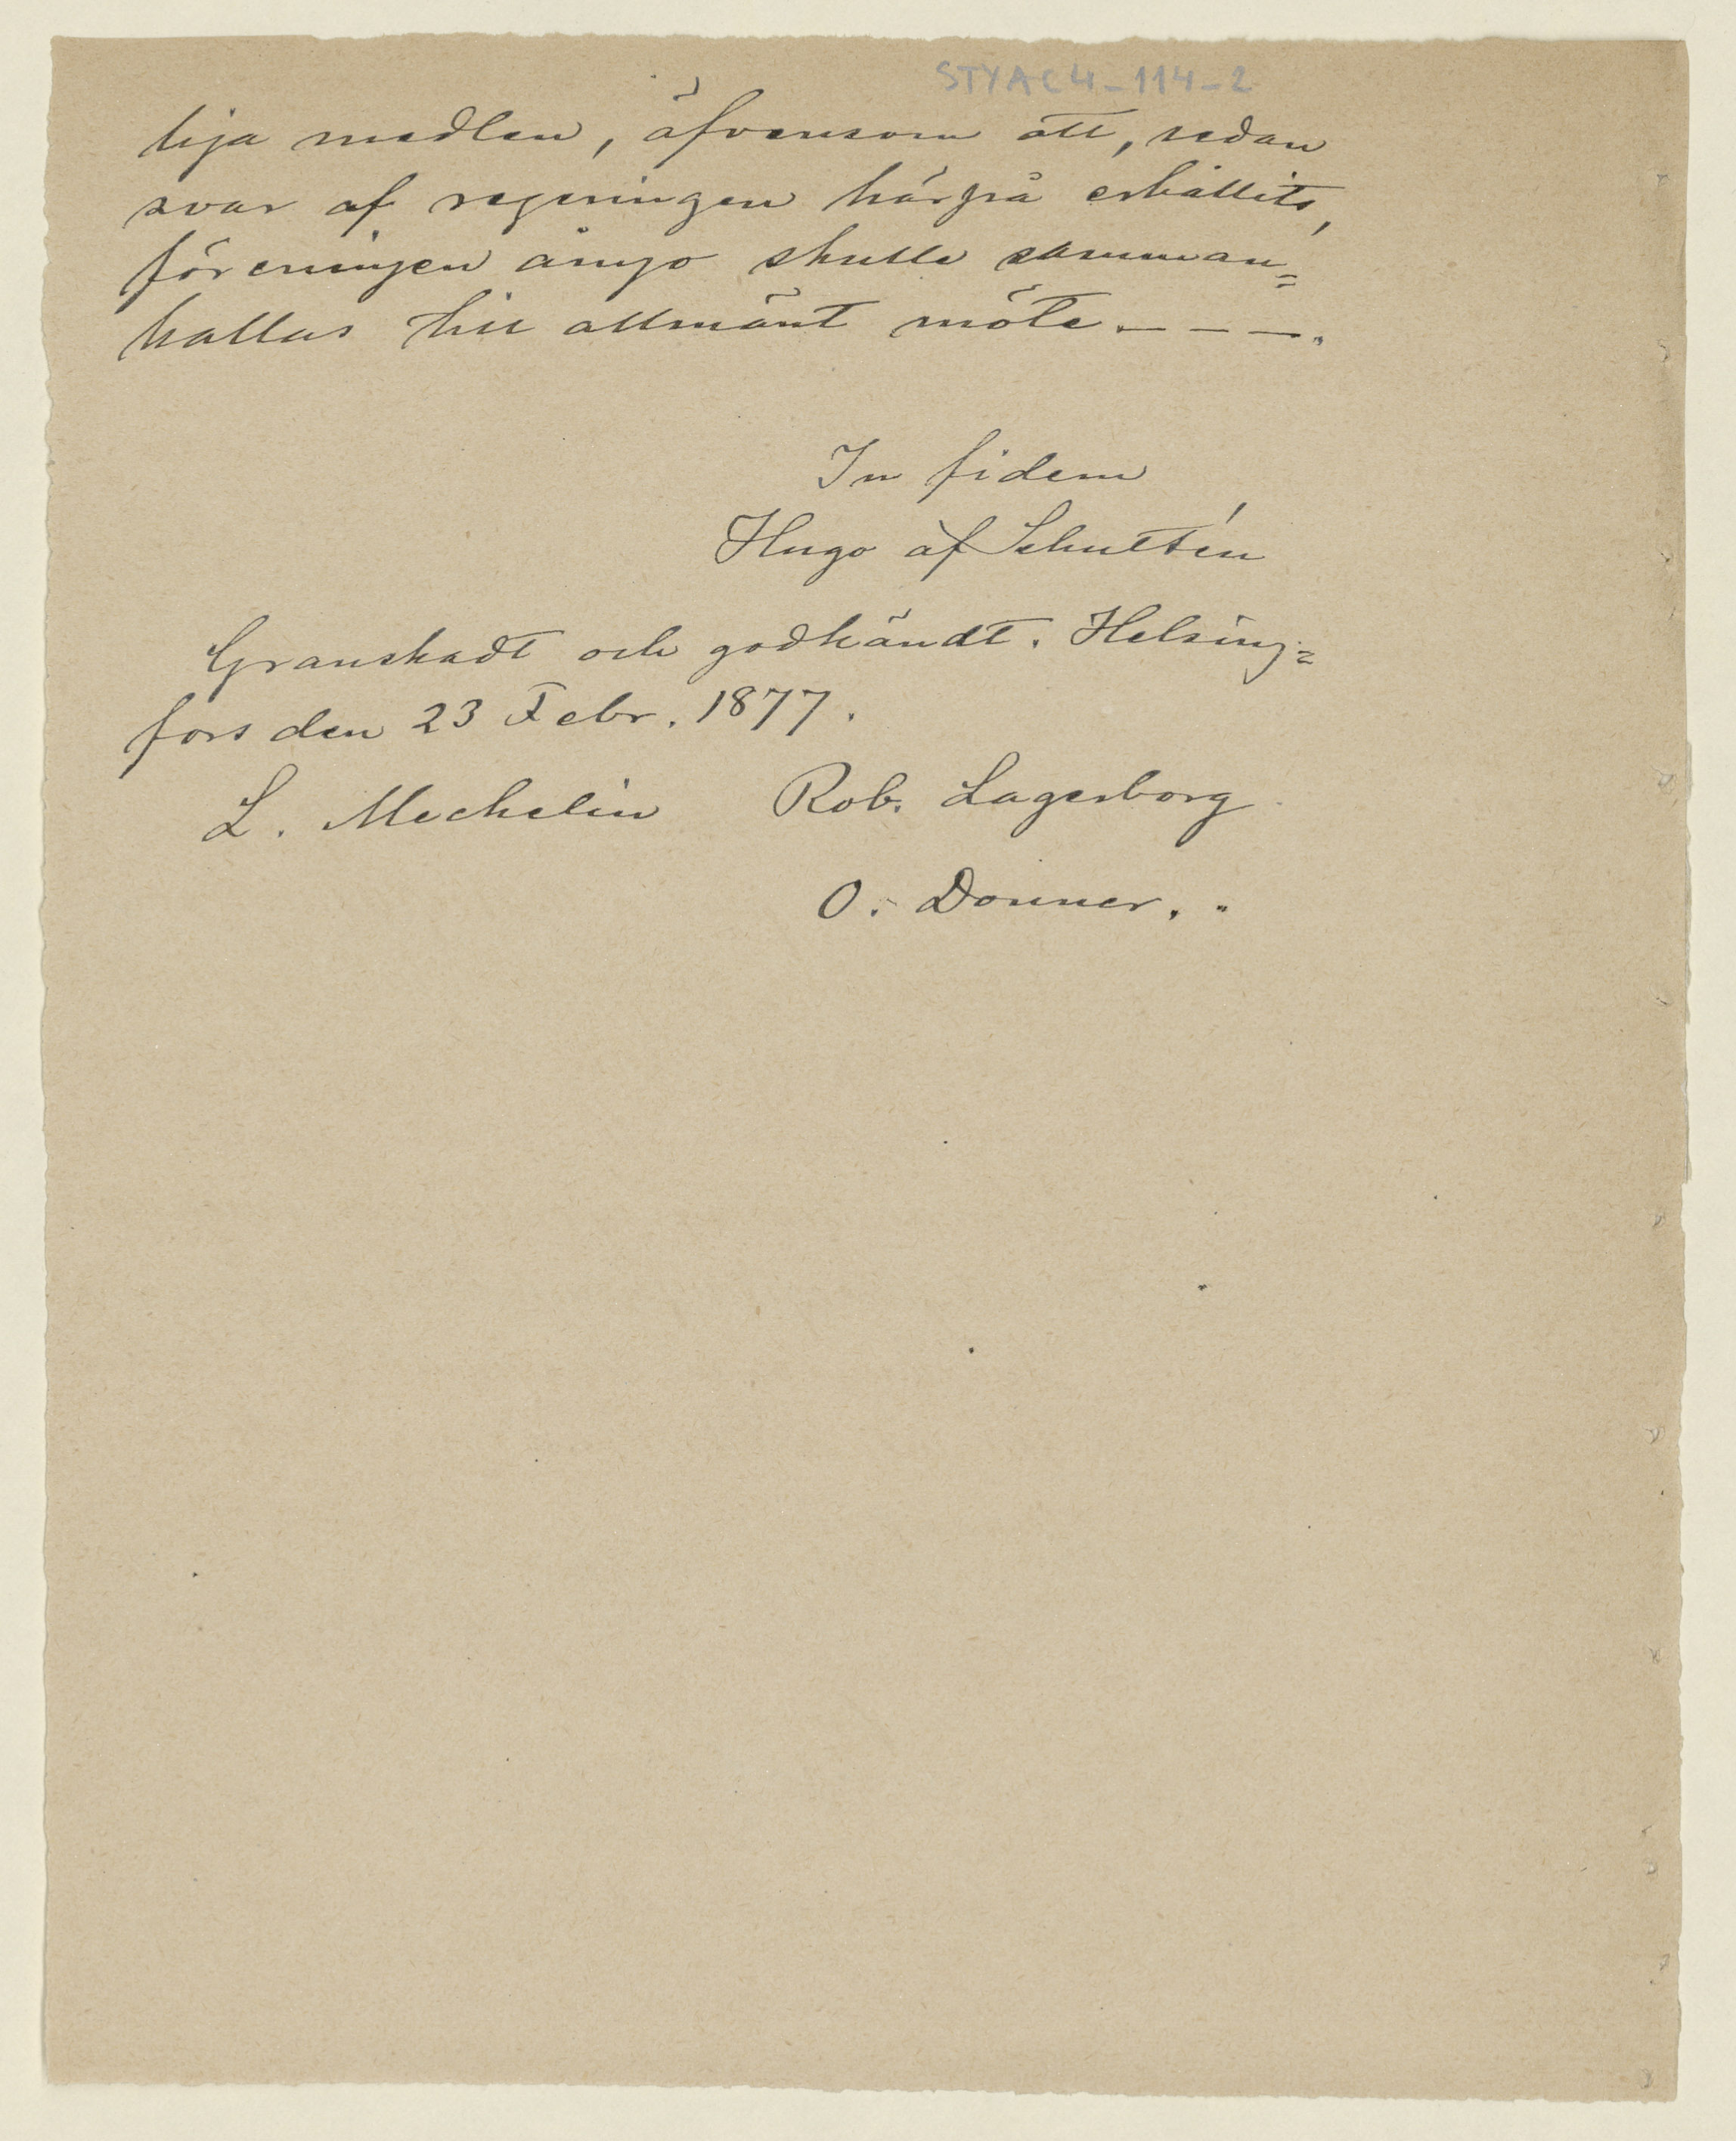 STYAC4-114-2
liga medlen, äfvensom att, sedan
svar af regeringen härpå erhållits,
föreningen ånyo skulle samman=
kallas till allmänt möte. — — —.
In fidem
Hugo af Schultén
Granskadt och godkändt. Helsing=
fors den 23 Febr. 1877.
L. Mechelin Rob. Lagerborg
O. Donner.